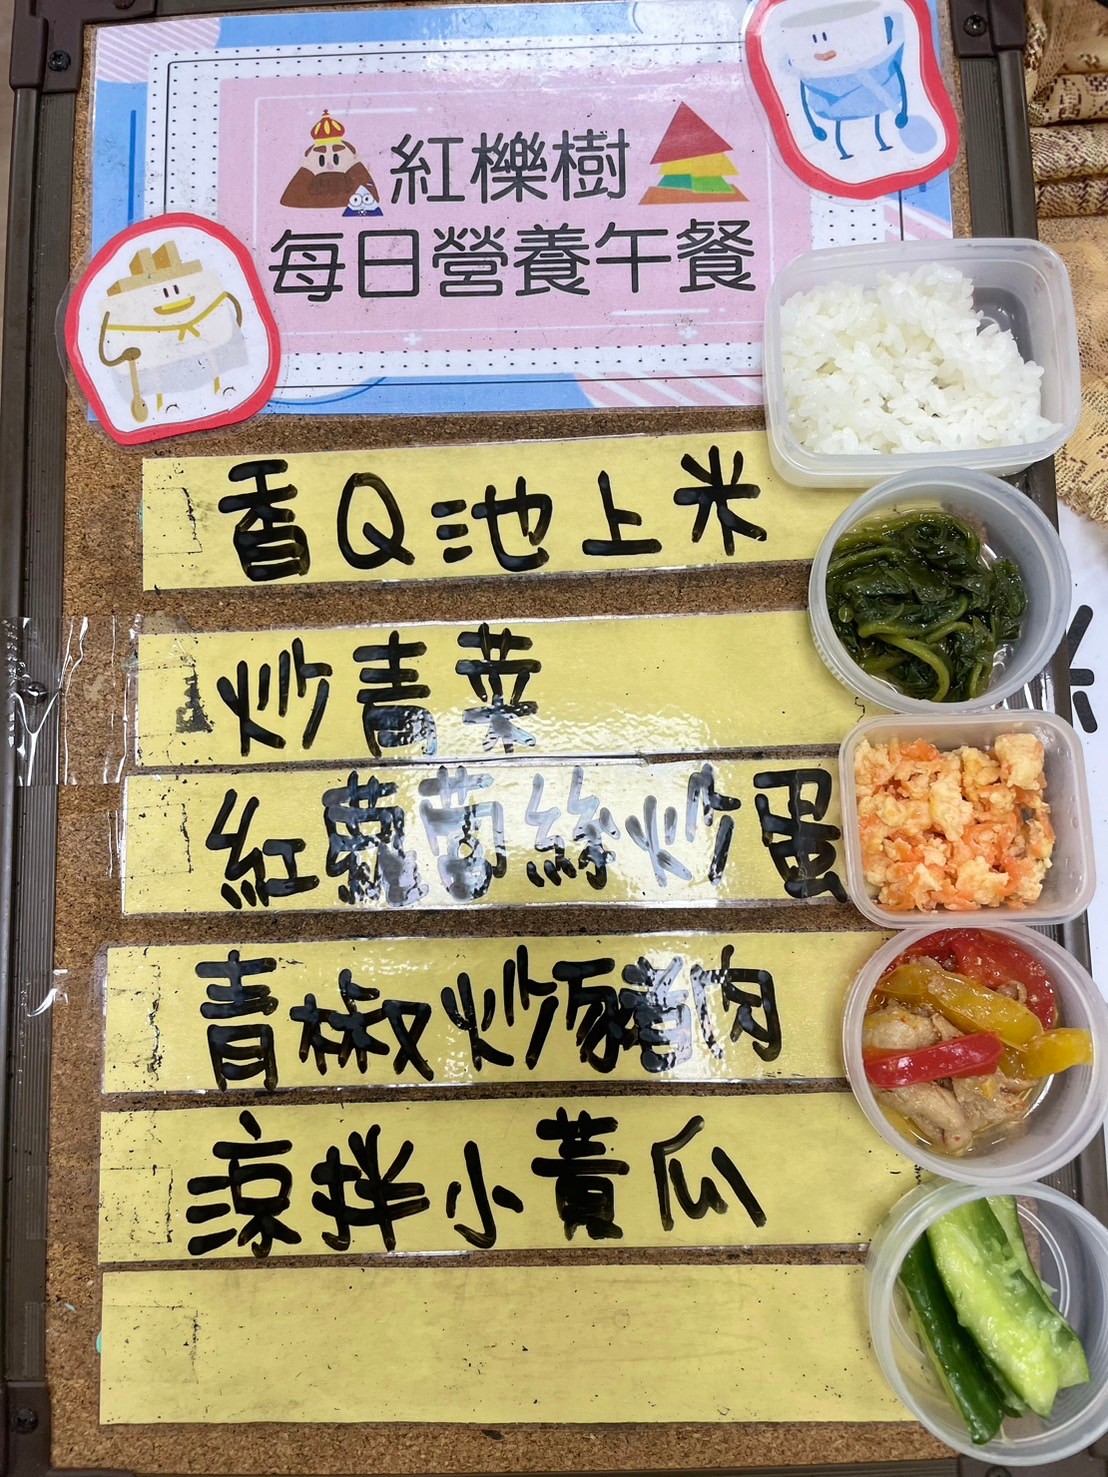 紅櫟樹
每日營養午餐
香Q池上米
炒青菜
紅蘿蔔絲炒蛋
青椒炒豬肉
涼拌小黃瓜
米